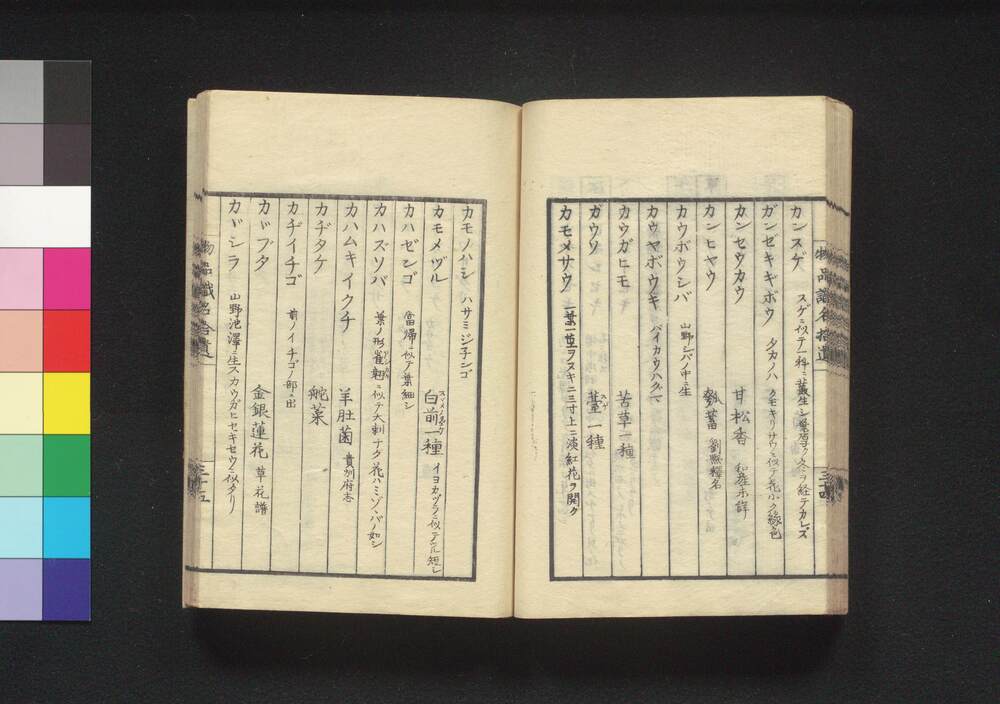 カンスゲ スゲニ似テ一科ニ叢生シ葉厚ク冬ヲ経テカレズ
ガンゼキギボウ タカノハ クモキリサウニ似テ花小ク緑色
カンセウカウ 甘松香 和産未詳
カンヒヤウ
カウボウシバ 山野シバノ中ニ生
カウヤボウキ バイカウハグマ
カウガヒモ 苦草一種
ガウソ 薹一種 スゲ
カモメサウ 一葉一茎ヲヌキ二三寸上ニ淡紅花ヲ開ク
物品識名拾遺 三十四
カモノハシ ハサミジチンゴ
カモメヅル 白前一種 イヨカヅラニ似テツル短シ
カハゼンゴ 當帰ニ似テ葉細シ
カハズソバ 葉ノ形雀翹ニ似テ大刺ナク花ハミゾソバノ如シ
カハムキイクチ 羊肚菌 貴州府志
カヂタケ 舵菜
カヂイチゴ 前ノイチゴノ部ニ出
カドブタ 金銀蓮花 草花譜
カドシラ 山野池澤ニ生スカウガヒセキセウニ似タリ
物品識名拾遺 三十五